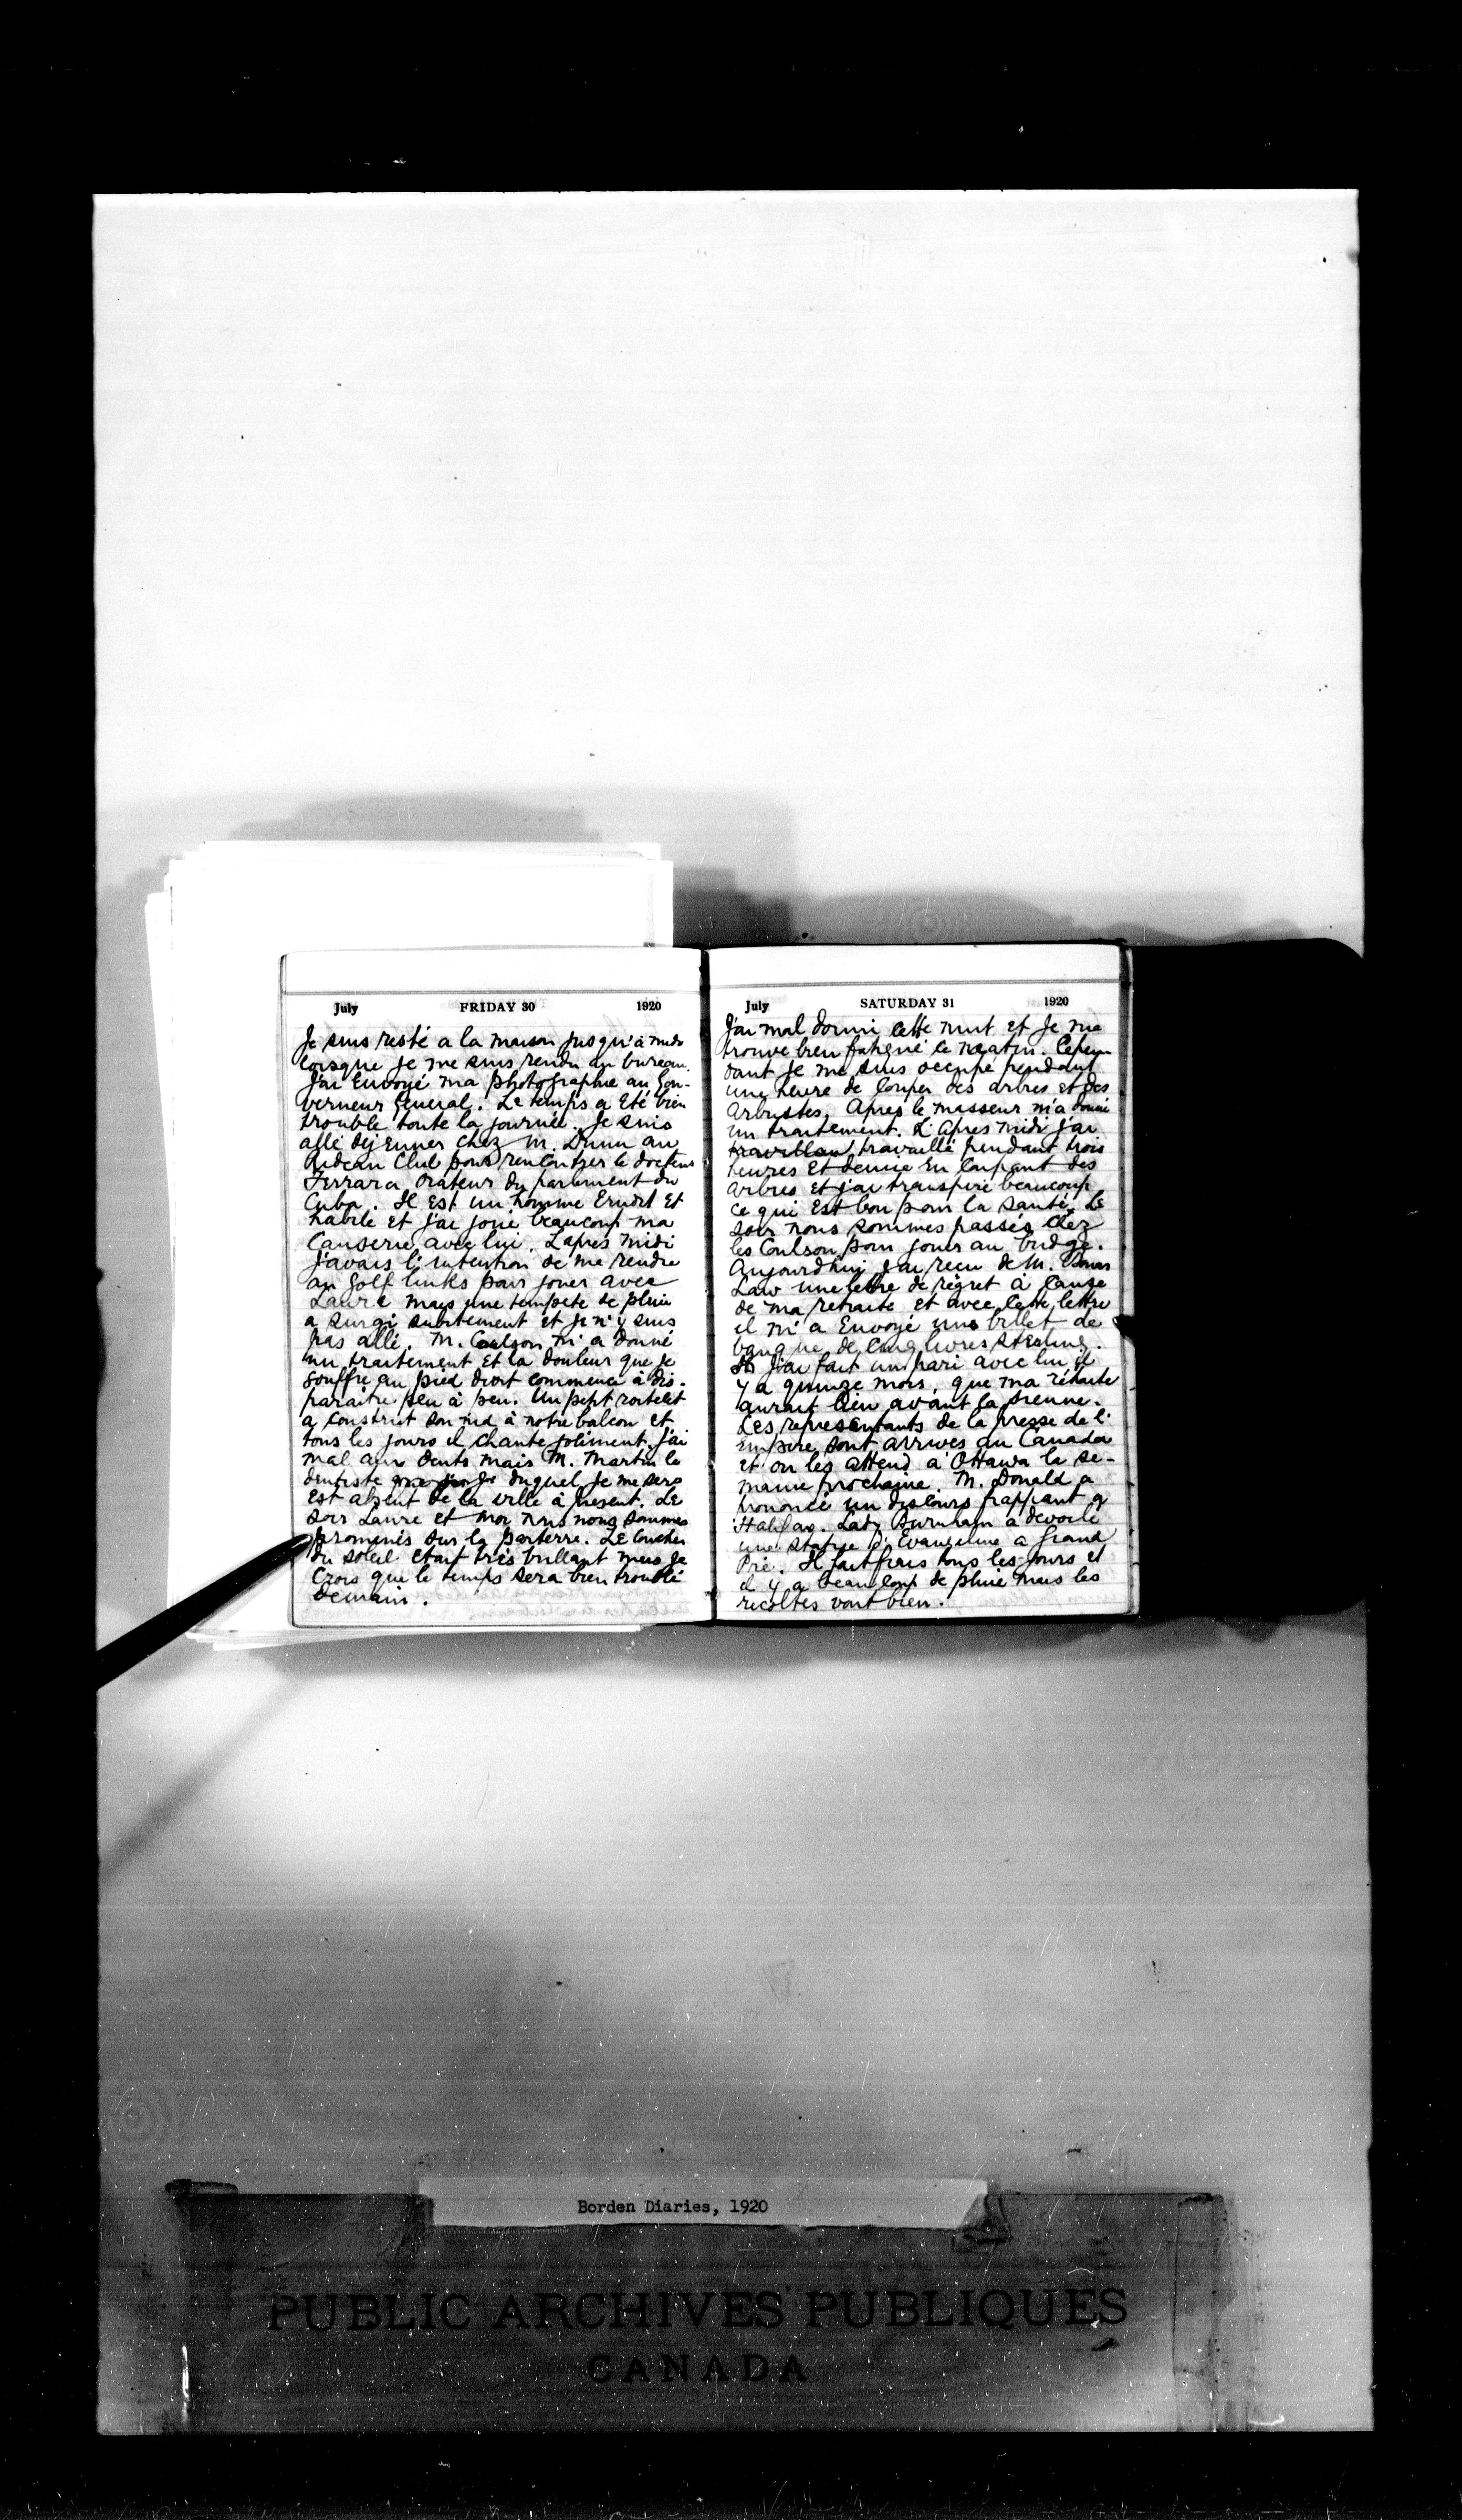 July FRIDAY 30 1920
Je suis resté a la maison jusqu'à midi
lorsque je me suis rendu au bureau.
J'ai envoyé ma photographie au Gou-
verneur General. Le temps a eté bien
trouble toute la journée. Je suis
allé dejeuner chez M. Dunn au
Rideau Club pour rencontrer le docteur
Ferrara Orateur du parlement du
Cuba. Il est un homme erudit et
habile et j'ai joui beaucoup ma
causerie avec lui. L'apres midi
J'avais l'intention de me rendre
au Golf links pour jouer avec
Laura mais une tempete de pluie
a surgi subitement et je n'y suis
pas allé. M. Coulson m'a donné
un traitement et la douleur que je
souffre au pied droit commence à dis-
paraitre peu à peu. Un petit roitelet
a construit son nid à notre balcon et
tous les jours il chante joliment. J'ai
mal aux dents mais M. Martin le
dentiste duquel je me sers
est absent de la ville à present. Le
soir Laure et moi nous nous sommes
promenés sur la parterre. Le coucher
du soleil etait très brillant mais je
crois que le temps sera bien trouble
demain.
July SATURDAY 31 1920
J'ai mal dormi cette nuit et je me
trouve bien fatigué ce matin. Cepen-
dant je me suis occupé pendant
une heure de couper des arbres et des
arbustes. Apres le masseur m'a donné
un traitement. L'apres midi j'ai
travaillé pendant trois
heures et demie en coupant des
arbres et j'ai transpiré beaucoup
ce qui est bon pour la santé. Le
soir nous sommes passés chez
les Coulson pour jouer au bridge.
Aujourdhui j'ai reçu de M. Bonar
Law une lettre de regret à cause
de ma retraite et avec cette lettre
il m'a envoyé une billet de
banque de cinq livres sterling.
J'ai fait un pari avec lui il
y a quinze mois, que ma retraite
aurait lieu avant la sienne.
Les representants de la presse de l'
empire sont arrives au Canada
et on les attend à Ottawa la se-
maine prochaine. M. Donald a
prononcé un discours frappant a
Halifax. Lady Burnham a devoilé
une statue d'Evangeline a Grand
Pré. Il fait frais tous les jours et
il y a beaucoup de pluie mais les
recoltes vont bien.
Borden Diaries, 1920
PUBLIC ARCHIVES PUBLIQUES
CANADA